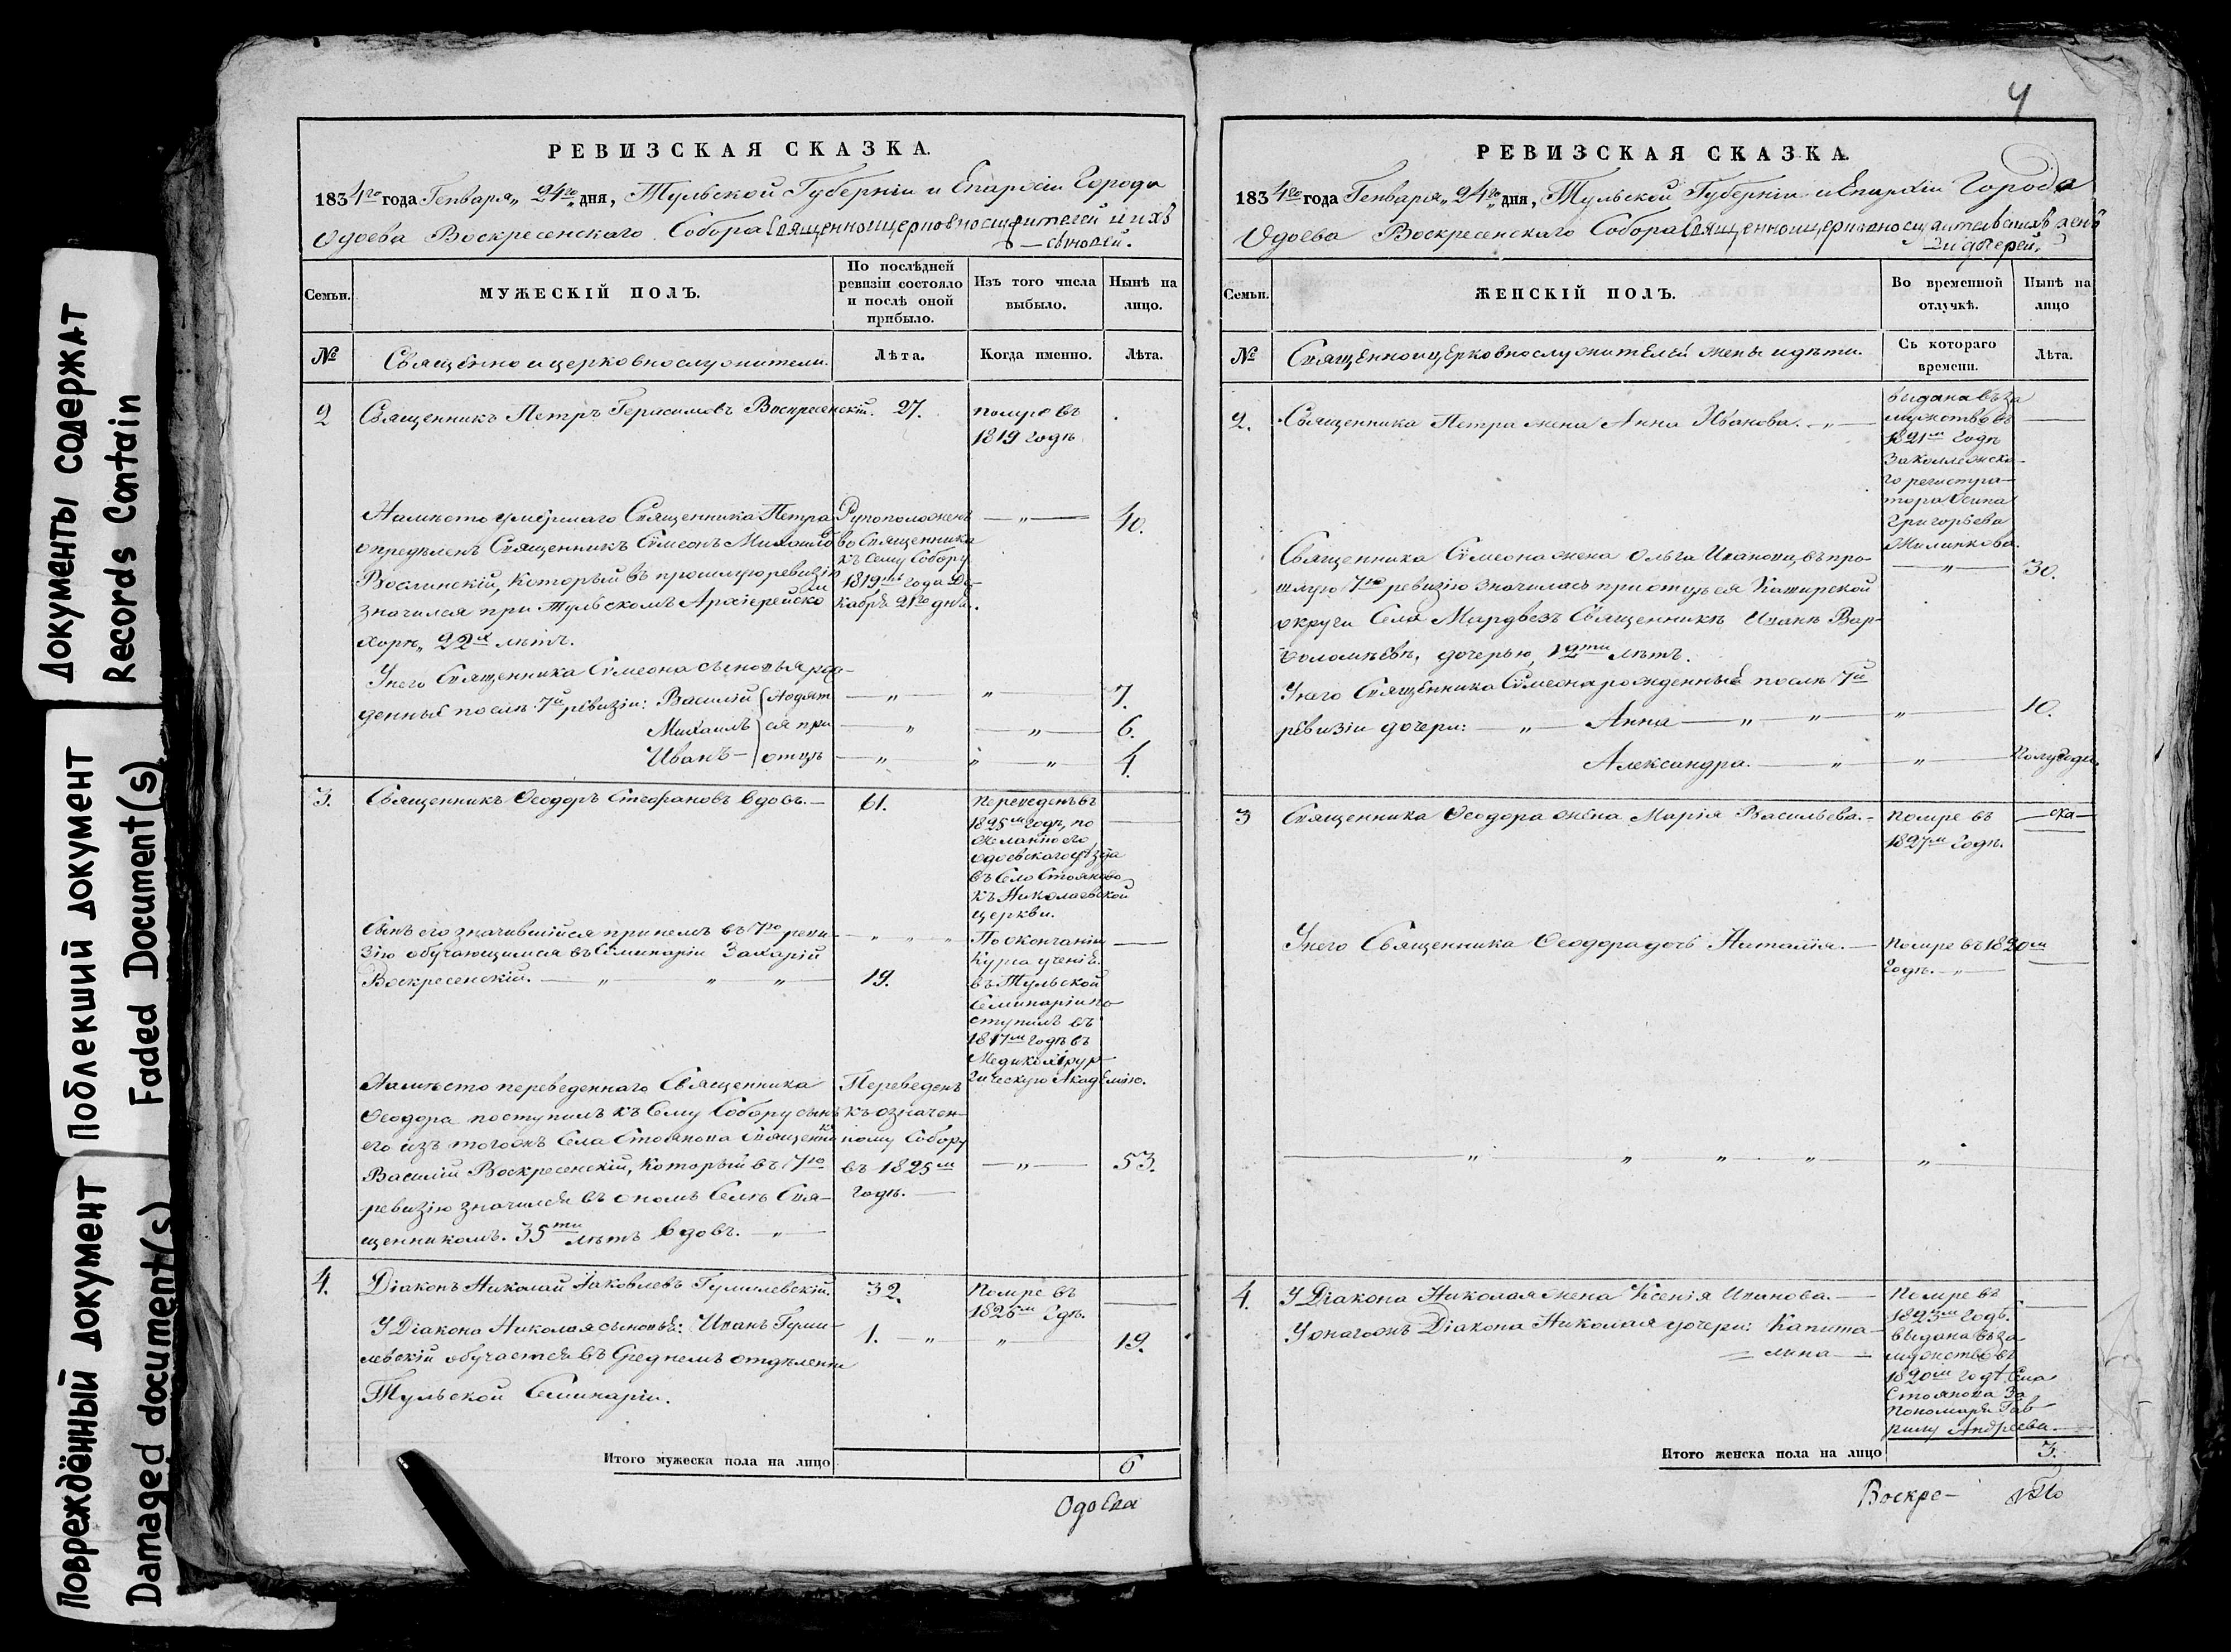 Документы содержат
Records Contain
Поблекший документ
Faded Document(s)
Повреждённый документ
Damaged document(s)
РЕВИЗСКАЯ СКАЗКА.
1834го года Генваря „24го„ дня, Тульской Губерніи и Епархіи Города
Одоева Воскресенскаго Собора Священноцерковнослужителей и ихъ
сыновей.
Семьи.
МУЖЕСКІЙ ПОЛЪ.
По послѣдней
ревизіи состояло
и послѣ оной
прибыло.
Изъ того числа
выбыло.
Нынѣ на
лицо.
№
Священно и церковнослужители.
Лѣта.
Когда именно.
Лѣта.
2
Священникъ Петръ Герасимовъ Воскресенскій.
27.
помре въ
1819 годѣ
Намѣсто умершаго Священника Петра
опредѣленъ Священникъ Сѵмеонъ Михайло
который въ прошлую ревизію
значился при Тульскомъ Архіерейско
м
хорѣ, 22х лѣтъ.
Рукоположенъ
во Священника
къ сему Собору
1819го года Де-
кабря 21го дня.
— „ —
40.
У него Священника Сѵмеона сыновья рож-
денные послѣ 7й ревизіи: Василій
Михаилъ
Иванъ —
Ходят
ся при
отцѣ
— „ —
„
7.
— „ —
— „ —
6.
— „ —
„ — „
4.
3.
Священникъ Ѳеодоръ Стефановъ вдовъ. —
61.
переведенъ въ
1825м годѣ, по
желанію его
Одоевскаго уѣзда
въ село Стояново
къ Николаевской
церкви.
Сынъ его значившійся при немъ въ 7ю реви-
зію обучающимся въ Семинаріи Захарій
Воскресенскій. — „ — „ — „ —
19.
По окончаніи
курса ученія
въ Тульской
Семинаріи по-
ступилъ въ
1817м годѣ въ
Медикохирур-
гическую Академію.
Намѣсто переведеннаго Священника
Ѳеодора поступилъ къ сему Собору сынъ
его изъ тогожъ села Стоянова Священни
къ
Василій Воскресенскій, который въ 7ю
ревизію значился въ ономъ селѣ Свя-
щенникомъ. 35ти лѣтъ вдовъ. — „ —
Переведенъ
къ означен-
ному Собору
въ 1825м
годѣ. —
— „ —
53.
4.
Діаконъ Николай Іаковлевъ Гумилевскій.
32.
Помре въ
1826м годѣ.
У Діакона Николая сыновья: Иванъ Гуми-
левскій обучается въ Среднемъ отдѣленіи
Тульской Семинаріи.
1. — „
„
19.
Итого мужеска пола на лицо
6
Одоева
4
РЕВИЗСКАЯ СКАЗКА.
1834го года Генваря „24го„ дня, Тульской Губерніи и Епархіи Города
Одоева Воскресенскаго Собора Священноцерковнослужительскихъ женъ
и дочерей.
Семьи.
ЖЕНСКІЙ ПОЛЪ.
Во временной
отлучкѣ.
Нынѣ на
лицо
№
Священноцерковнослужителей жены и дѣти.
Съ котораго
времени.
Лѣта.
2.
Священника Петра жена Анна Иванова. — „ —
выдана въ за
мужство въ
1821м годѣ
за коллежска-
го регистра-
тора Осипа
Григорьева
Жилинкова.
Священника Сѵмеона жена Ольга Иванова, въ про-
шлую 7ю ревизію значилась при отцѣ ея Каширской
округи села Мардвезъ Священникѣ Иванѣ Вар-
ѳоломѣевѣ, дочерью, 12ти лѣтъ.
— „ —
30.
У него Священника Сѵмеона рожденные послѣ 7й
ревизіи дочери: — „ — Анна — „ — „
— „ —
10.
Александра. — „ —
— „ —
Полугода.
3
Священника Ѳеодора жена Марія Васильева. —
помре въ
1827м годѣ.
У него Священника Ѳеодора дочь Наталія. —
помре въ 1820м
годѣ. — „ —
— „ — „ — „ — „ — „ —
4.
У Діакона Николая жена Ксенія Иванова. —
Помре въ
1823м годѣ.
У онагожъ Діакона Николая дочери: Капито-
лина —
выдана въ за-
мужство въ
1820м годѣ села
Стоянова за
пономаря Гав-
рилу Андреева —
Итого женска пола на лицо
3.
Воскре-